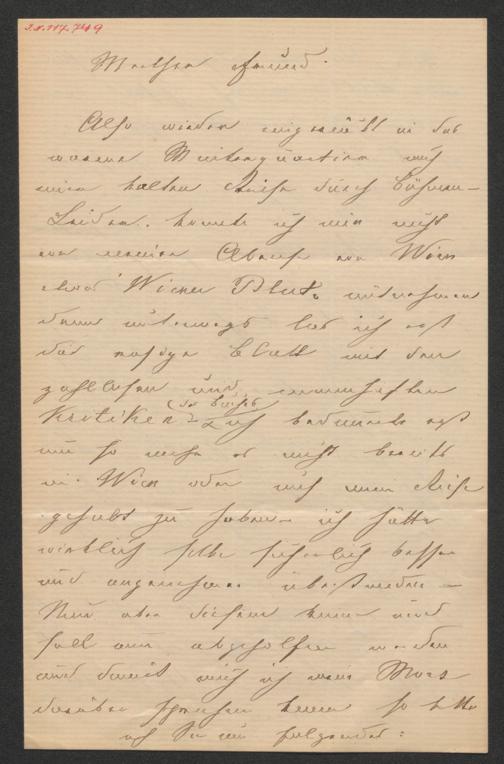 I.N. 117.749
Werther Freund.
Also wieder eingerückt in das
warme Winterquartier nach
einer kalten Reise durch Böhmen –
Leider konnte ich mir nicht
vor meiner Abreise von Wien
etwas Wiener Blut mitnehmen
denn unterwegs las ich erst
das Blatt mit den
zahllosen und
Kritiken (des Buches) – Ich bedauerte erst
um so mehr es nicht bereits
in Wien oder auf meiner Reise
gehabt zu haben – ich hätte
wirklich selbe sicherlich besser
und angenehmer überstanden –
Nun aber diesem kann und
soll nun abgeholfen werden
und damit auch ich mein
darüber sprechen kann so bitte
ich Sie um folgendes: